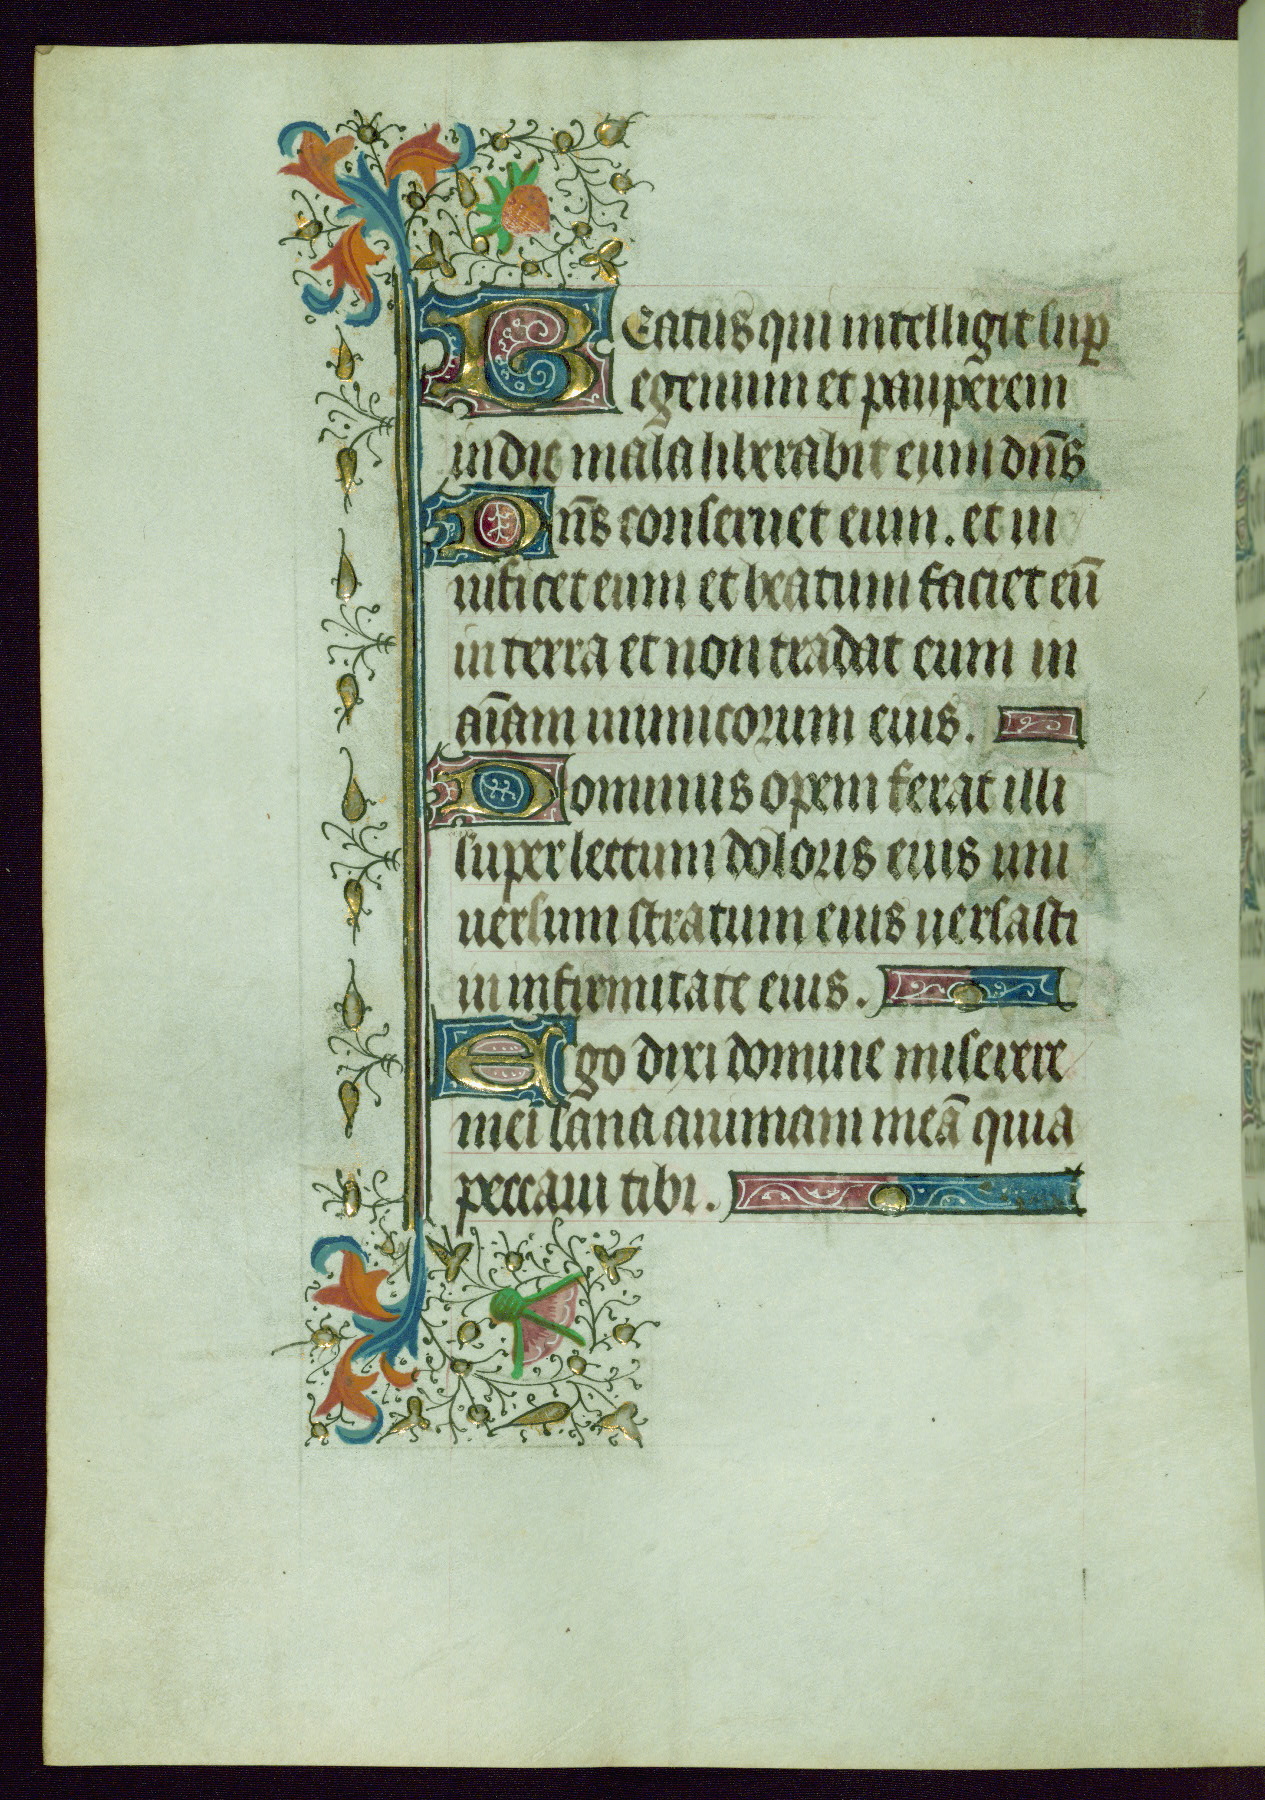 Beatus qui intelligit sup̲
egenum et pauperem
in die mala liberabit eum dn̄s
Dn̄s conseruet eum. et ui
uificet eum et beatum faciet eū
in terra et non tradat eum in
aīam inimicorum eius.
Dominus opem ferat illi
super lectum doloris eius uni
uersum stratum eius uersasti
in infirmitate eius.
Ego dixi domine miserere
mei sana animam meā quia
peccaui tibi.